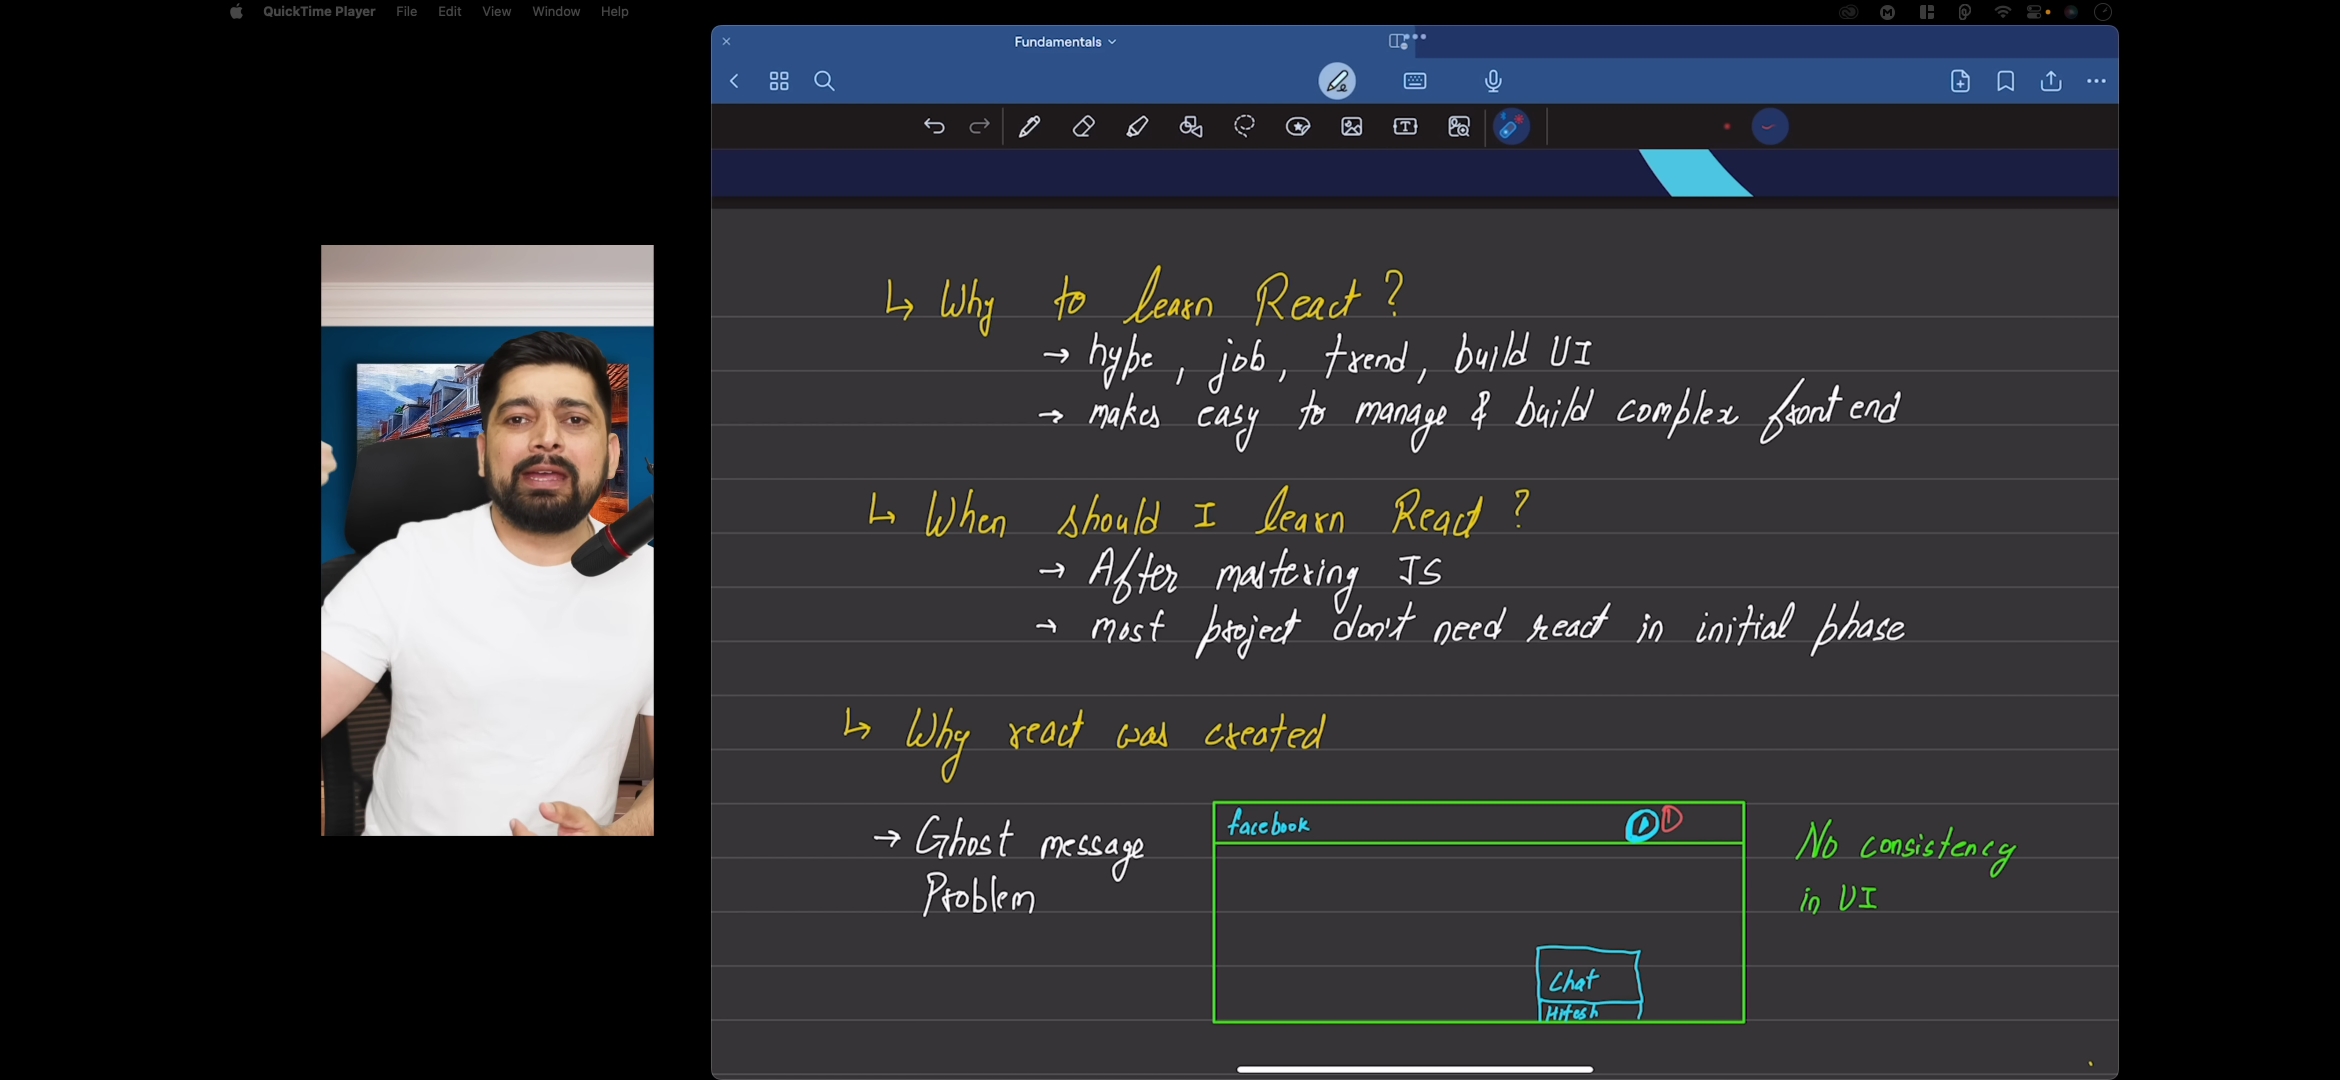 QuickTime Player File Edit View Window Help
Fundamentals
↳ Why to learn React ?
→ hype, job, trend, build UI
→ makes easy to manage & build complex front end
↳ When should I learn React ?
→ After mastering JS
→ most project don't need react in initial phase
↳ Why react was created
→ Ghost message
Problem
facebook
1
Chat
Hitesh
No consistency
in UI